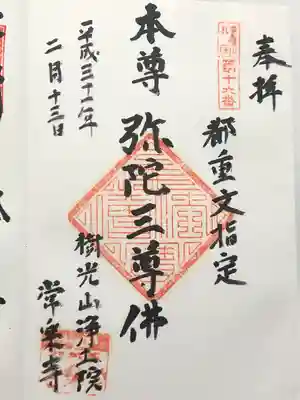 奉拝
都重文指定
本尊 弥陀三尊佛
樹光山浄土院
常楽寺
平成三十一年
二月十三日